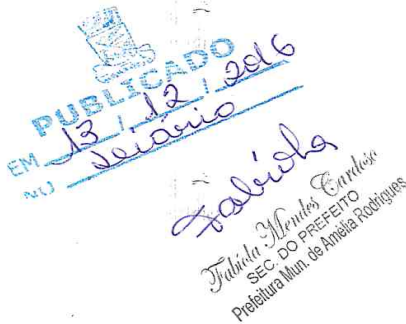 PUBLICADO
EM 13 / 12 / 2016
NO Diário
Fabíola
Fabíola Mendes Cardoso
SEC. DO PREFEITO
Prefeitura Mun. de Amélia Rodrigues